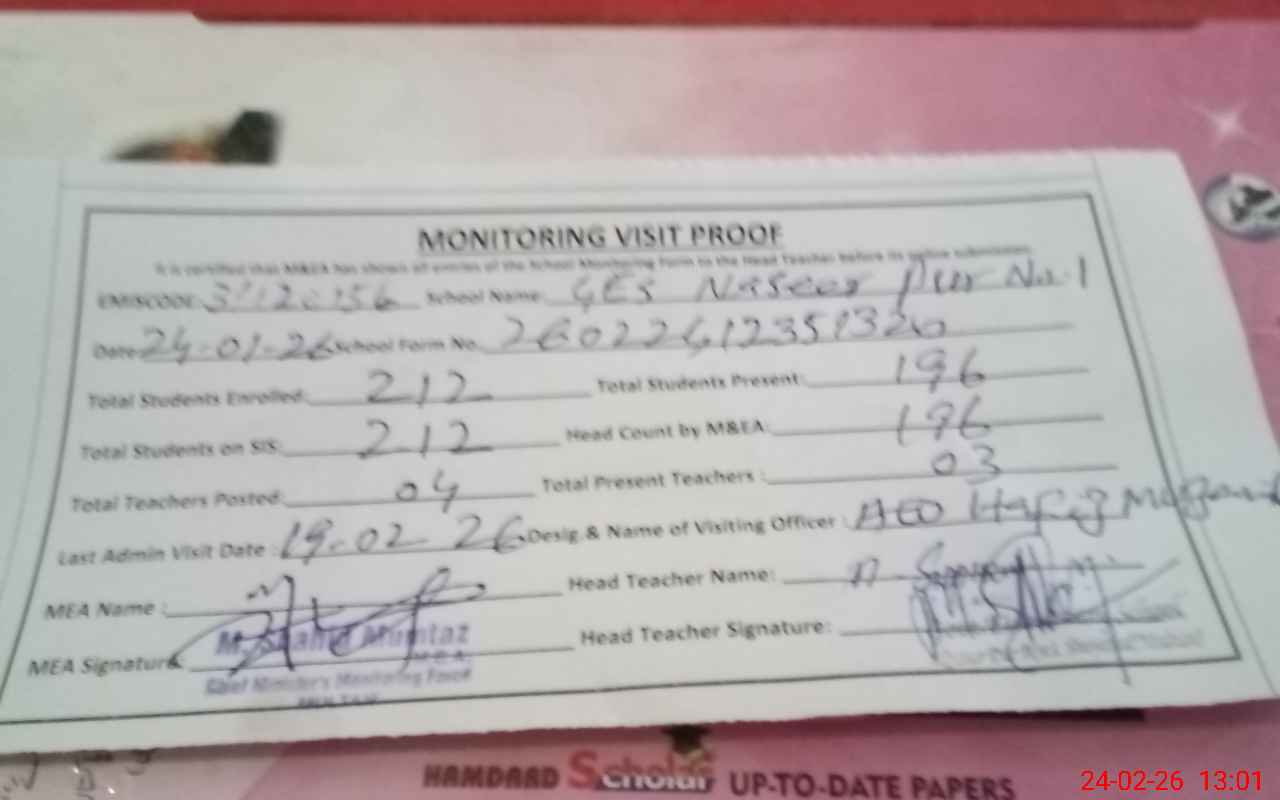 MONITORING VISIT PROOF
It is certified that M&EA has shown all entries of the School Monitoring Form to the Head Teacher before its online submission
EMISCODE: School Name: GES Naseer Pur No. 1
Date: 24-01-26 School Form No.
Total Students Enrolled: 212 Total Students Present: 196
Total Students on SIS: 212 Head Count by M&EA: 196
Total Teachers Posted: 04 Total Present Teachers : 03
Last Admin Visit Date : 19-02-26 Desig & Name of Visiting Officer : AEO Hafiz
MEA Name : Head Teacher Name:
MEA Signature: Head Teacher Signature:
M. Shahid Mumtaz
M E A
Chief Minister's Monitoring Force
MULTAN
HAMDARD Scholar UP-TO-DATE PAPERS
24-02-26 13:01